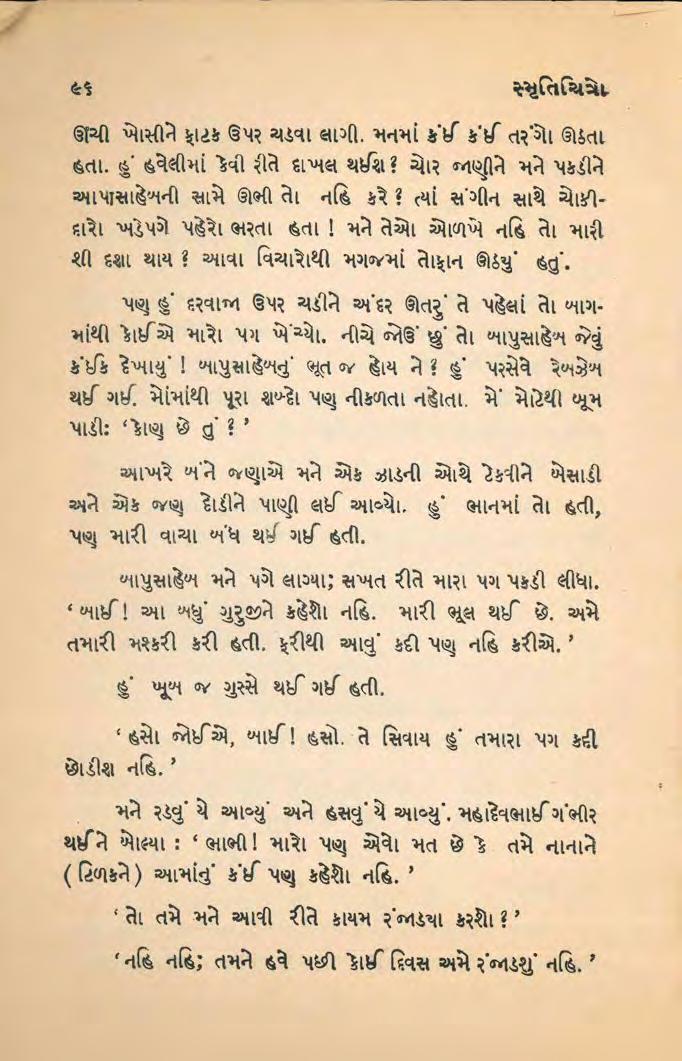 ૯૬ સ્મૃતિચિત્રો
ઊંચી ખોસીને ફાટક ઉપર ચડવા લાગી. મનમાં કંઈ કંઈ તરંગો ઊઠતા
હતા. હું હવેલીમાં કેવી રીતે દાખલ થઈશ? ચોર જાણીને મને પકડીને
આપાસાહેબની સામે ઊભી તો નહિ કરે? ત્યાં સંગીન સાથે ચોકી-
દારો ખડેપગે પહેરો ભરતા હતા! મને તેઓ ઓળખે નહિ તો મારી
શી દશા થાય? આવા વિચારોથી મગજમાં તોફાન ઊઠયું હતું.
પણ હું દરવાજા ઉપર ચડીને અંદર ઊતરું તે પહેલાં તો બાગ-
માંથી કોઈએ મારો પગ ખેંચ્યો. નીચે જોઉં છું તો બાપુસાહેબ જેવું
કંઈક દેખાયું! બાપુસાહેબનું ભૂત જ હોય ને? હું પરસેવે રેબઝેબ
થઈ ગઈ. મોંમાંથી પૂરા શબ્દો પણ નીકળતા નહોતા. મેં મોટેથી બૂમ
પાડી: ‘કોણ છે તું?’
આખરે બંને જણાએ મને એક ઝાડની ઓથે ટેકવીને બેસાડી
અને એક જણ દોડીને પાણી લઈ આવ્યો. હું ભાનમાં તો હતી,
પણ મારી વાચા બંધ થઈ ગઈ હતી.
બાપુસાહેબ મને પગે લાગ્યા; સખત રીતે મારા પગ પકડી લીધા.
‘બાઈ! આ બધું ગુરુજીને કહેશો નહિ. મારી ભૂલ થઈ છે. અમે
તમારી મશ્કરી કરી હતી. ફરીથી આવું કદી પણ નહિ કરીએ.’
હું ખૂબ જ ગુસ્સે થઈ ગઈ હતી.
‘હસો જોઈએ, બાઈ! હસો. તે સિવાય હું તમારા પગ કદી
છોડીશ નહિ.’
મને રડવું યે આવ્યું અને હસવું યે આવ્યું. મહાદેવભાઈ ગંભીર
થઈને બોલ્યા : ‘ભાભી! મારો પણ એવો મત છે કે તમે નાનાને
(ટિળકને) આમાંનું કંઈ પણ કહેશો નહિ.’
‘તો તમે મને આવી રીતે કાયમ રંજાડયા કરશો?’
‘નહિ નહિ; તમને હવે પછી કોઈ દિવસ અમે રંજાડશું નહિ.’